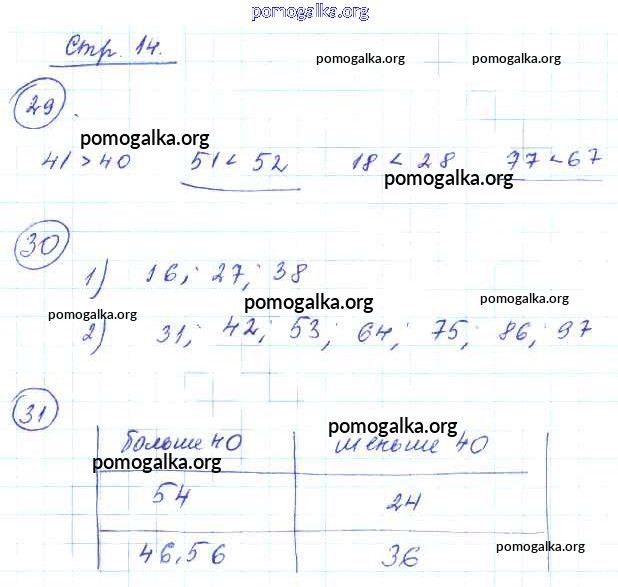 pomogalka.org
Стр. 14.
pomogalka.org pomogalka.org
29
pomogalka.org
41 > 40 51 < 52 18 < 28 77 < 67
pomogalka.org
30
1) 16; 27; 38
pomogalka.org pomogalka.org pomogalka.org
2) 31; 42; 53; 64; 75; 86; 97
31
pomogalka.org
больше 40 меньше 40
pomogalka.org
54 24
46,56 36
pomogalka.org